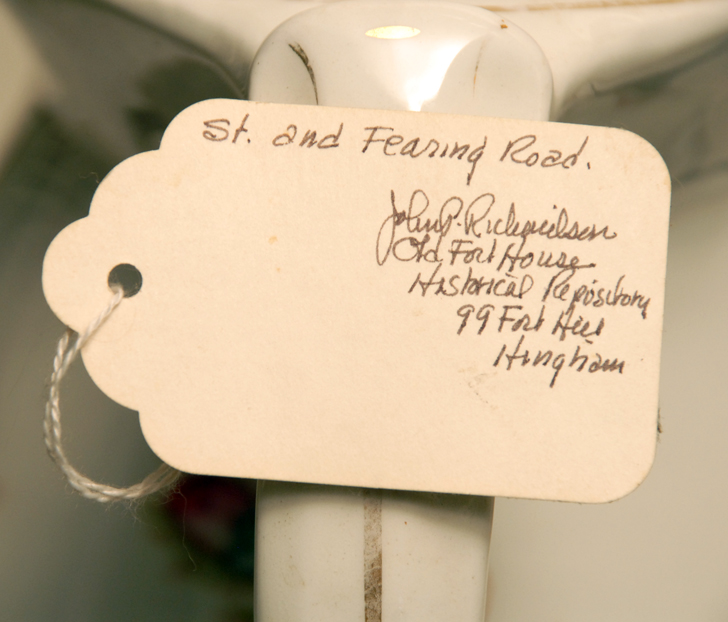 St. and Fearing Road.
John P. Richardson
Old Fort House
Historical Repository
99 Fort Hill
Hingham